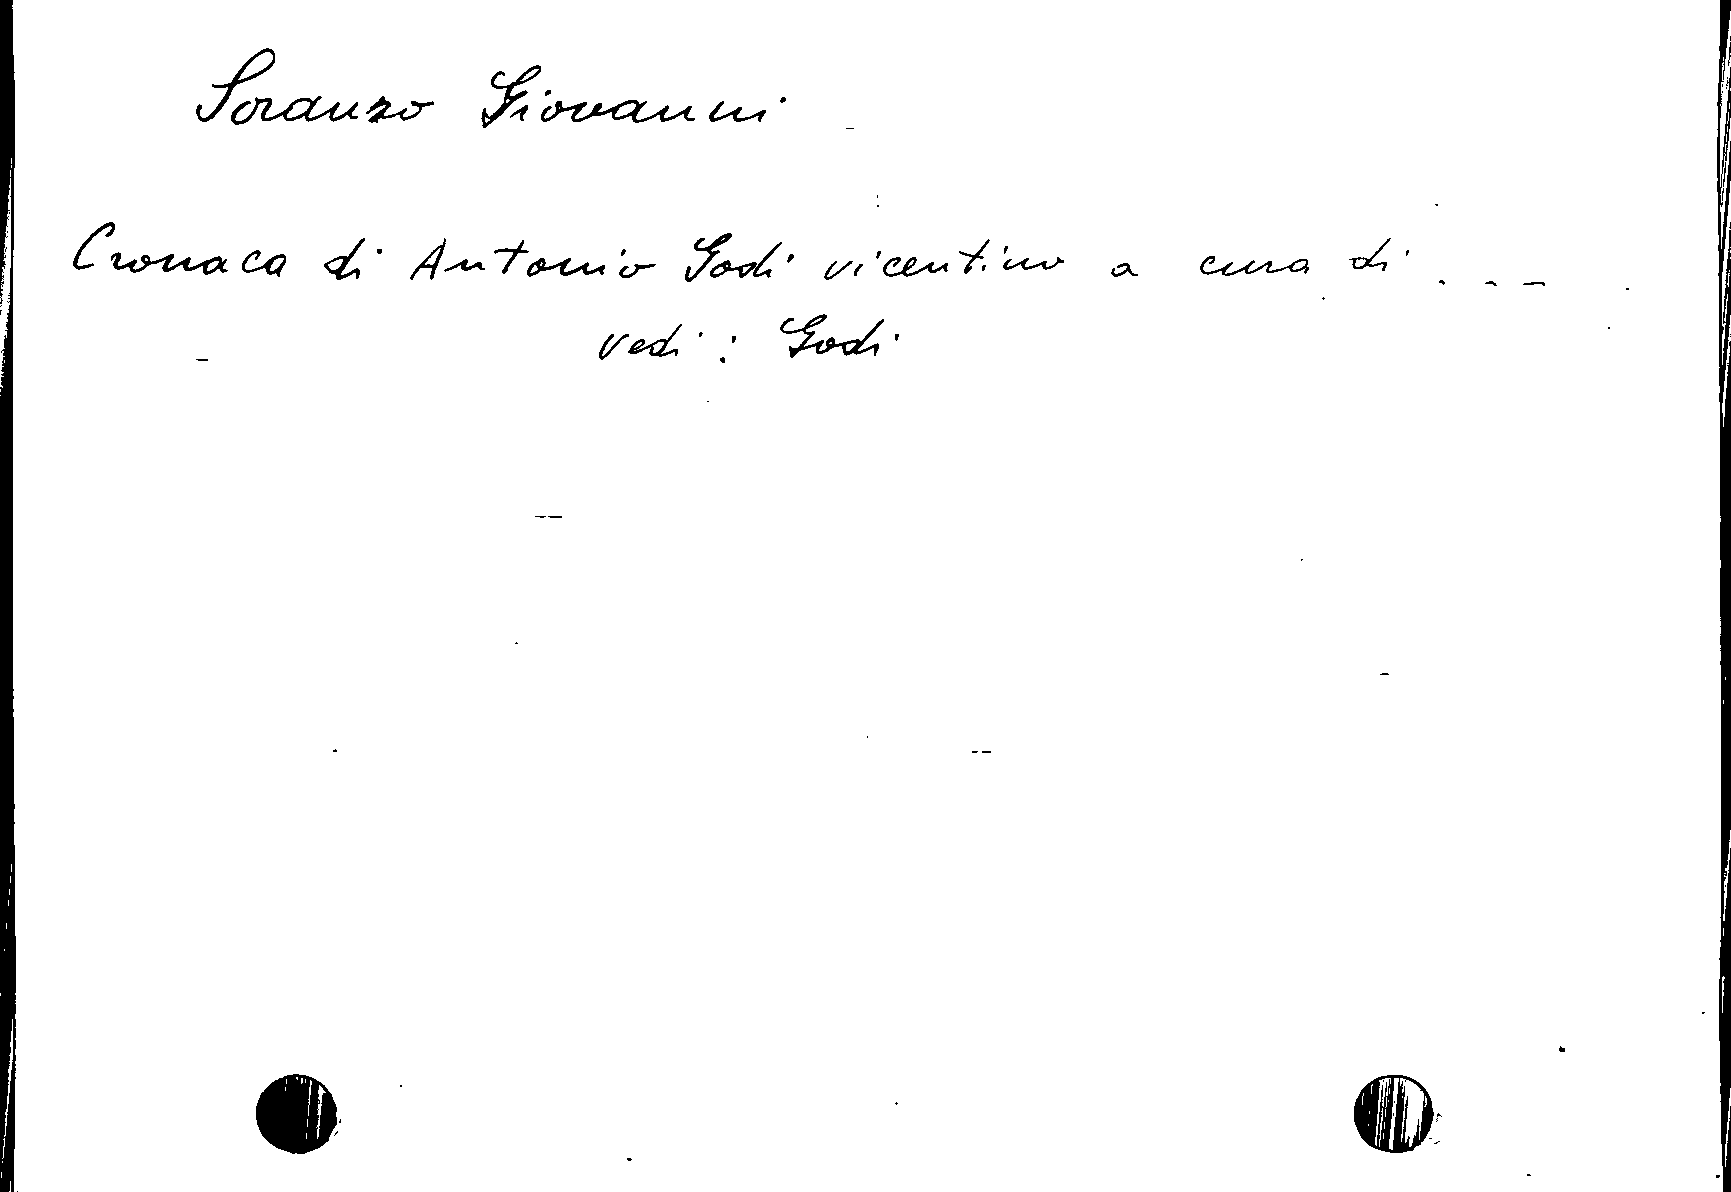 Soranzo Giovanni
Cronaca di Antonio Godi vicentino a cura di . . .
vedi : Godi